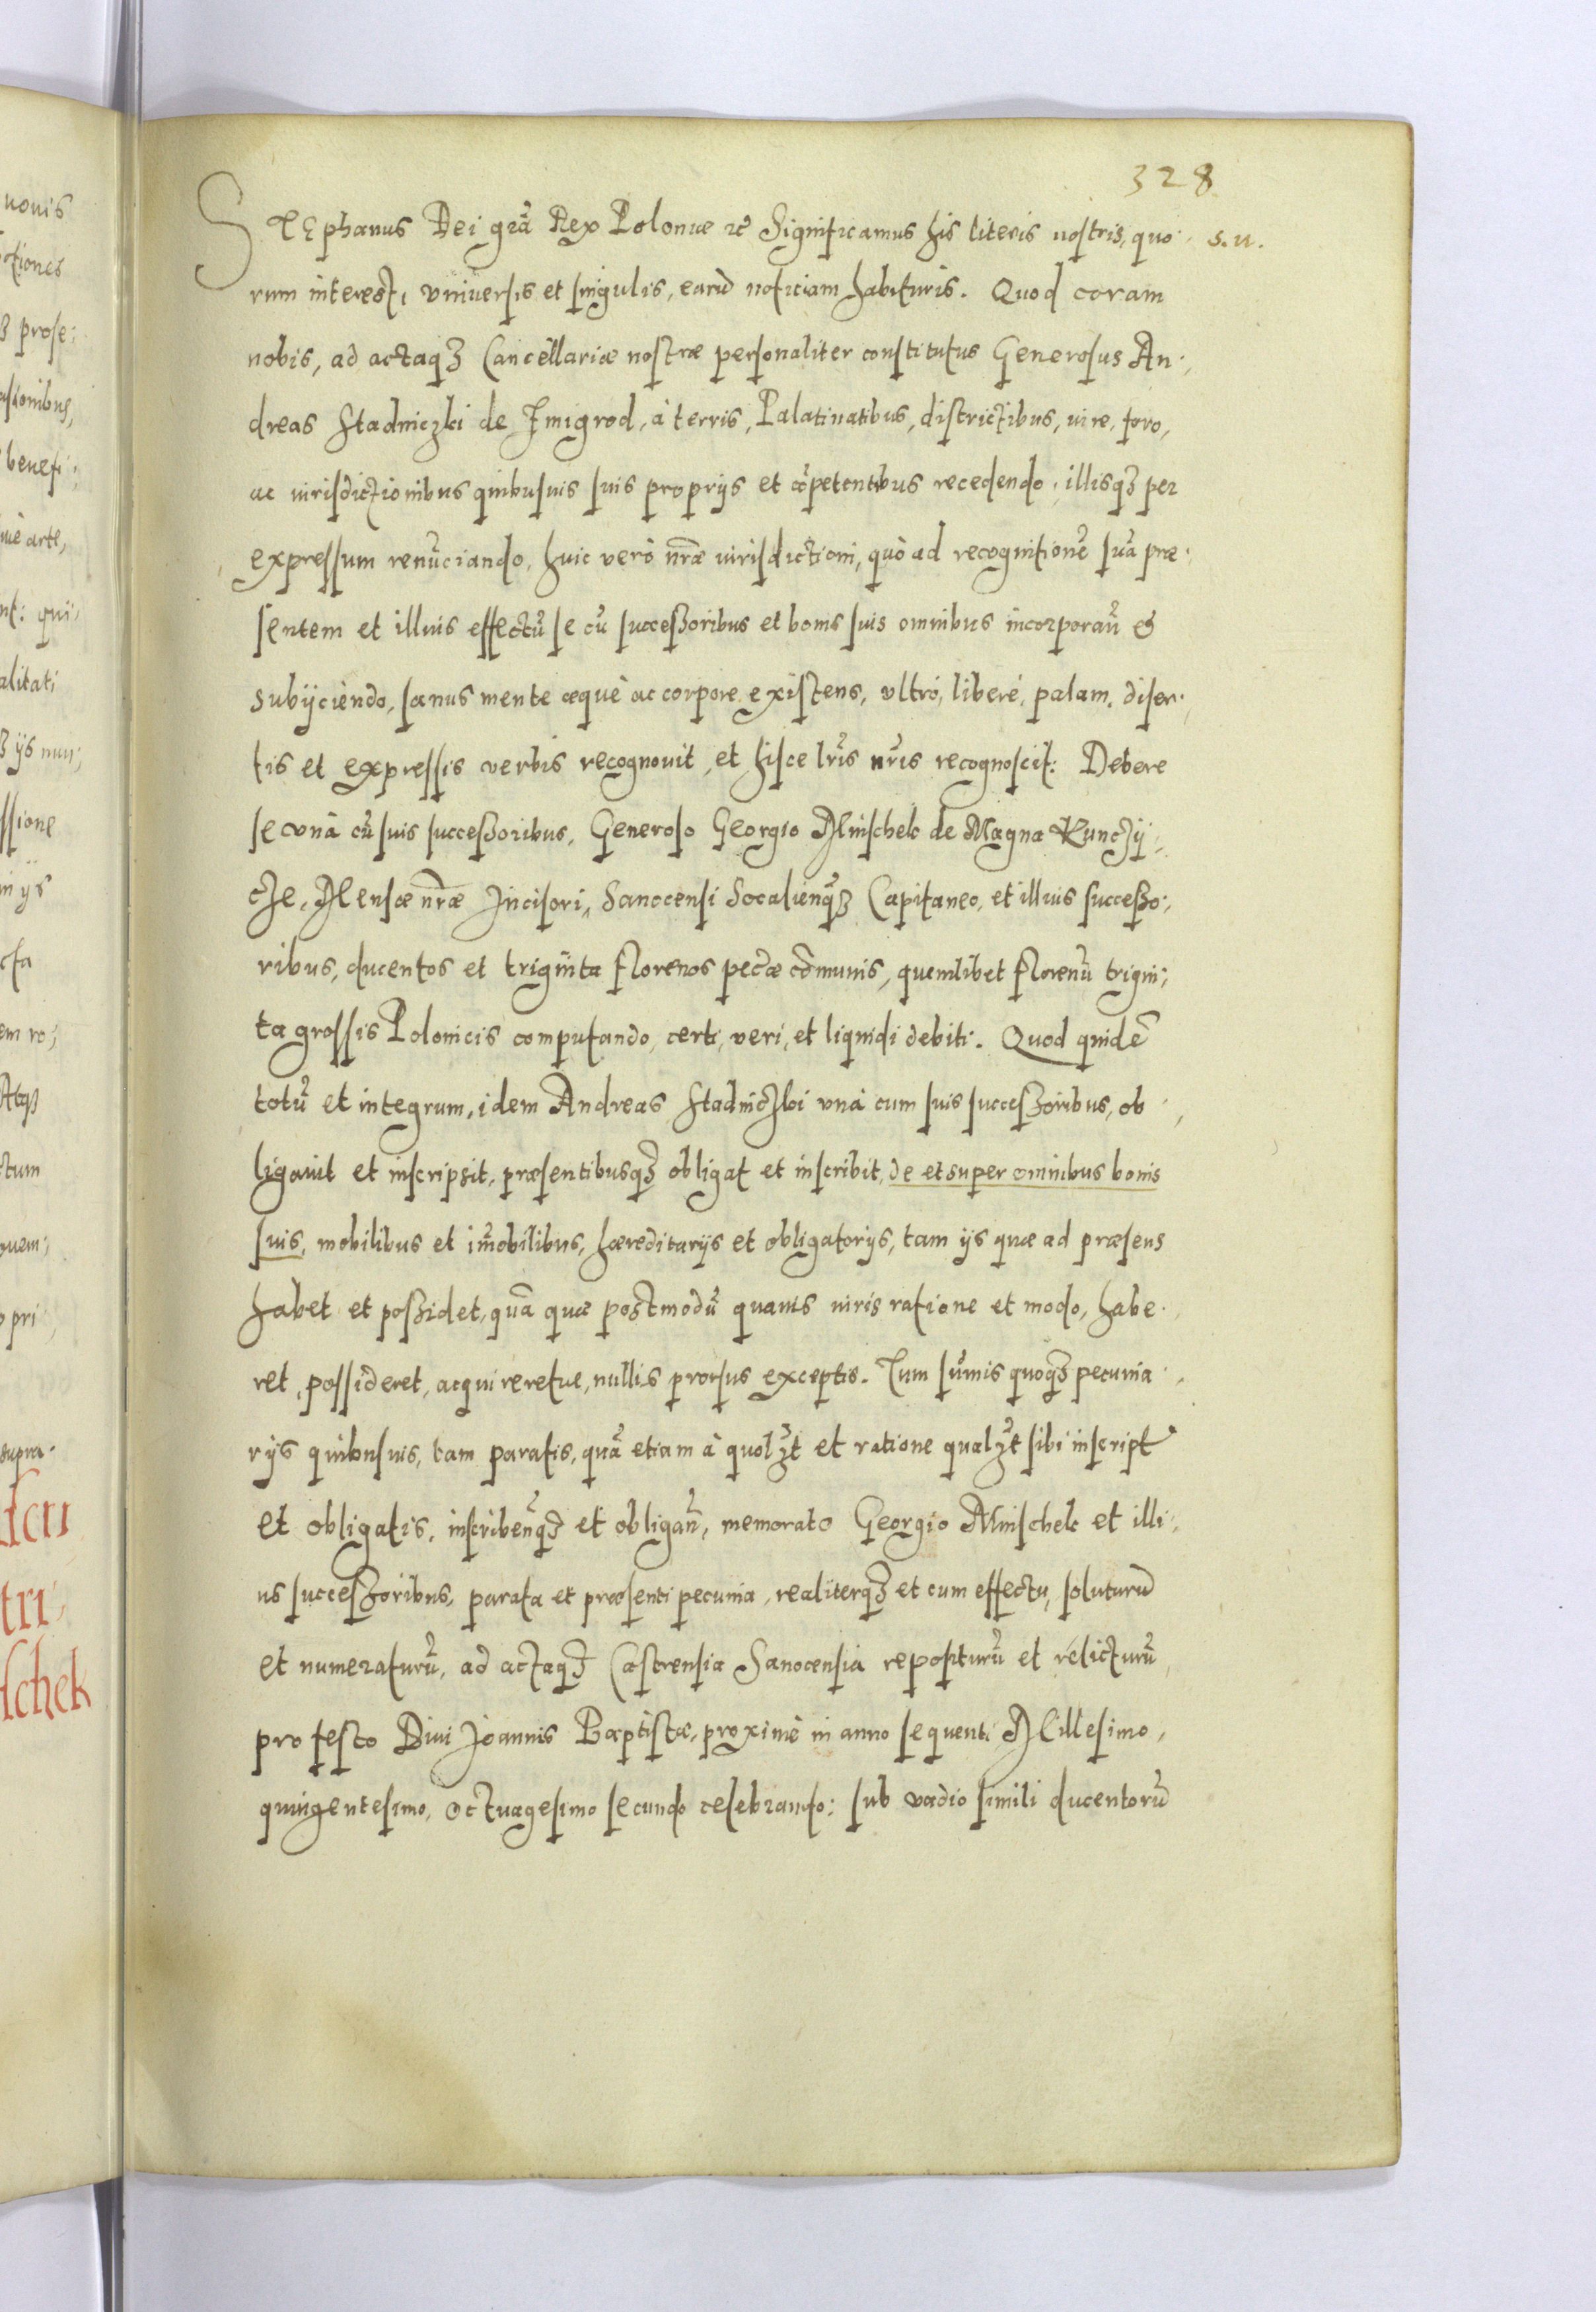 328
STEphanus Dei gr̃a Rex Poloniæ ꝛc̃ Significamus his literis nostris, quo- s. n.
rum interest, vniuersis et singulis, earũ noticiam habituris. Quod coram
nobis, ad actaqꝫ Cancellariæ nostræ personaliter constitutus Generosus An-
dreas Stadniczki de Zmigrod, à terris, Palatinatibus, districtibus, iure, foro,
ac iurisdictionibus quibusuis suis proprijs et cõpetentibus recedendo, illisqꝫ per
expressum renũciando, huic verò nr̃æ iurisdictioni, quò ad recognitionẽ suã præ-
sentem et illius effectũ se cũ successoribus et bonis suis omnibus incorporañ et
subijciendo, sanus mente æquè ac corpore existens, vltrò, liberè, palam, diser-
tis et expressis verbis recognouit, et hisce lr̃is nr̃is recognoscit: Debere
se vnà cũ suis successoribus, Generoso Georgio Mnischek de Magna Kunczy-
cze, Mensæ nr̃æ Incisori, Sanocensi Socalieñqꝫ Capitaneo, et illius successo-
ribus, ducentos et triginta florenos pec̃æ cõmunis, quemlibet florenũ trigin-
ta grossis Polonicis computando, certi, veri, et liquidi debiti. Quod quidẽ
totũ et integrum, idem Andreas Stadniczki vnà cum suis successoribus, ob-
ligauit et inscripsit, præsentibusqꝫ obligat et inscribit, de et super omnibus bonis
suis, mobilibus et im̃obilibus, hæreditarijs et obligatorijs, tam ijs quæ ad præsens
habet et possidet, quã quæ postmodũ quauis iuris ratione et modo, habe-
ret, possideret, acquireretue, nullis prorsus exceptis. Tum sũmis quoqꝫ pecunia-
rijs quibusuis, tam paratis, quã etiam à quolꝫt et ratione qualꝫt sibi inscript
et obligatis, inscribeñqꝫ et obligañ, memorato Georgio Mnischek et illi-
us successoribus, parata et præsenti pecunia, realiterqꝫ et cum effectu, soluturũ
et numeraturũ, ad actaqꝫ Castrensia Sanocensia repositurũ et relicturũ,
pro festo Diui Joannis Baptistæ, proximè in anno sequenti Millesimo,
quingentesimo, octuagesimo secundo celebrando: sub vadio simili ducentorũ